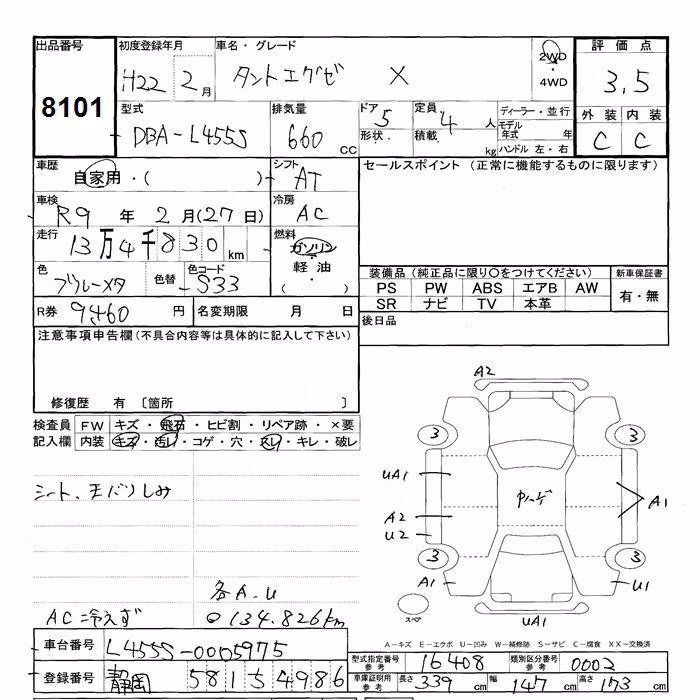 出品番号 8101
初度登録年月 H22 2月
車名・グレード タントエグゼ X
2WD・4WD
評価点 3.5
型式 DBA-L455S
排気量 660 CC
ドア 5 形状.
定員 4人 積載. kg
ディーラー・並行
モデル年式 年
ハンドル 左・右
外装 C 内装 C
車歴 自家用・( )
シフト AT
セールスポイント (正常に機能するものに限ります)
車検 R9年 2月(27日)
冷房 AC
走行 13万4千830km
燃料 ガソリン・軽油 ( )
色 ブルーメタ 色替 色コード S33
装備品 (純正品に限り○をつけてください)
PS PW ABS エアB AW
SR ナビ TV 本革
新車保証書 有・無
R券 9460円 名変期限 月 日
後日品
注意事項申告欄 (不具合内容等は具体的に記入して下さい)
修復歴 有 〔箇所 〕
検査員記入欄
FW キズ・飛石・ヒビ割・リペア跡・×要
内装 キズ・汚レ・コゲ・穴・スレ・キレ・破レ
各A.U
AC冷えず
134.826km
A2
3 3
UA1
A2
U2
A1
3 3
A1 U1
スペア
UA1
A-キズ E-エクボ U-凹み W-補修跡 S-サビ C-腐食 XX-交換済
車台番号 L455S-0005975
登録番号 静岡 581 5 4986
型式指定番号 参考 16408 類別区分番号 参考 0002
車庫証明用 参考 長さ 339cm 幅 147cm 高さ 173cm